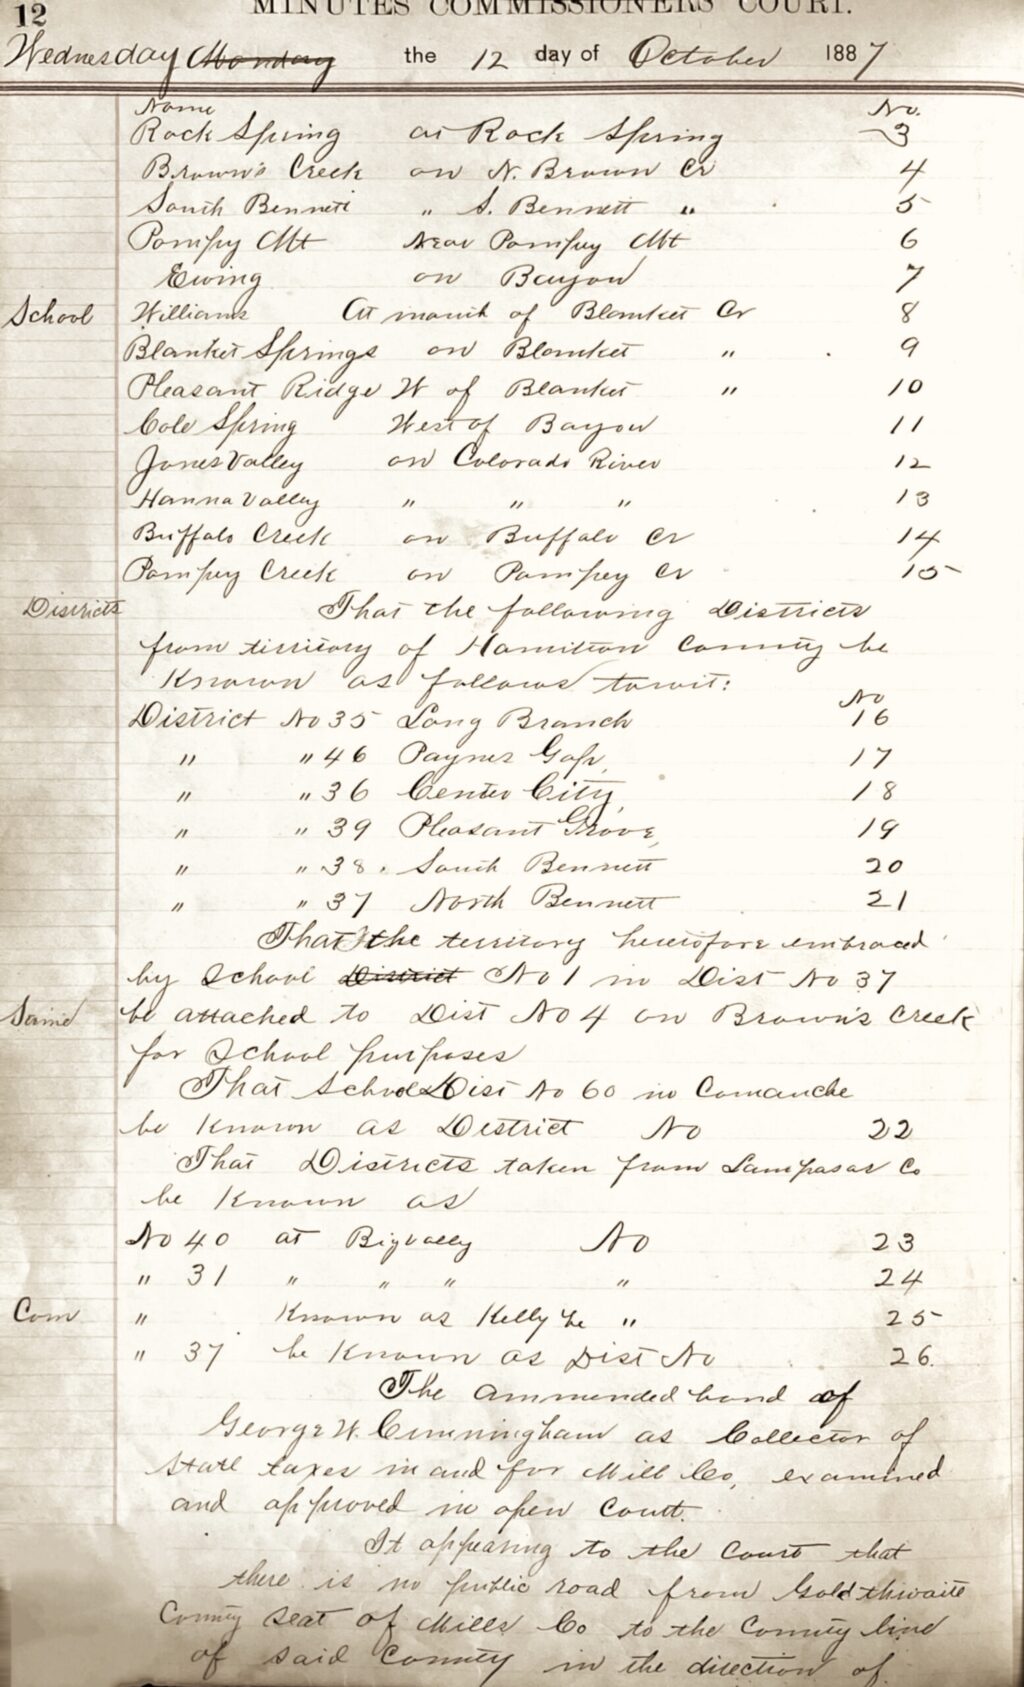 12
MINUTES COMMISSIONERS COURT.
Wednesday Monday the 12 day of October 1887
Name No.
Rock Spring at Rock Spring 3
Brown's Creek on N. Brown Cr 4
South Bennett " S. Bennett " 5
Pompy Mt Near Pompey Mt 6
Ewing on Bayou 7
School Williams At mouth of Blanket Cr 8
Blanket Springs on Blanket " 9
Pleasant Ridge W of Blanket " 10
Cole Spring West of Bayou 11
Jones Valley on Colorado River 12
Hanna Valley " " " 13
Buffalo Creek on Buffalo Cr 14
Pompey Creek on Pompey Cr 15
Districts That the following Districts
from territory of Hamilton County be
Known as follows towit:
No
District No 35 Long Branch 16
" " 46 Paynes Gap, 17
" " 36 Center City, 18
" " 39 Pleasant Grove, 19
" " 38. South Bennett 20
" " 37 North Bennett 21
That the territory heretofore embraced
by School District No 1 in Dist No 37
Same be attached to Dist No 4 on Brown's Creek
for School purposes
That School Dist No 60 in Comanche
be Known as District No 22
That Districts taken from Lampasas Co
be Known as
No 40 at Bigvally No 23
" 31 " " " " 24
Com " Known as Kelly be " 25
" 37 be Known as Dist No 26.
The ammended bond of
George W. Cunningham as Collector of
State taxes in and for Mill Co, examined
and approved in open Court.
It appearing to the Court that
there is no public road from Goldthwaite
County Seat of Mills Co to the County line
of said County in the direction of